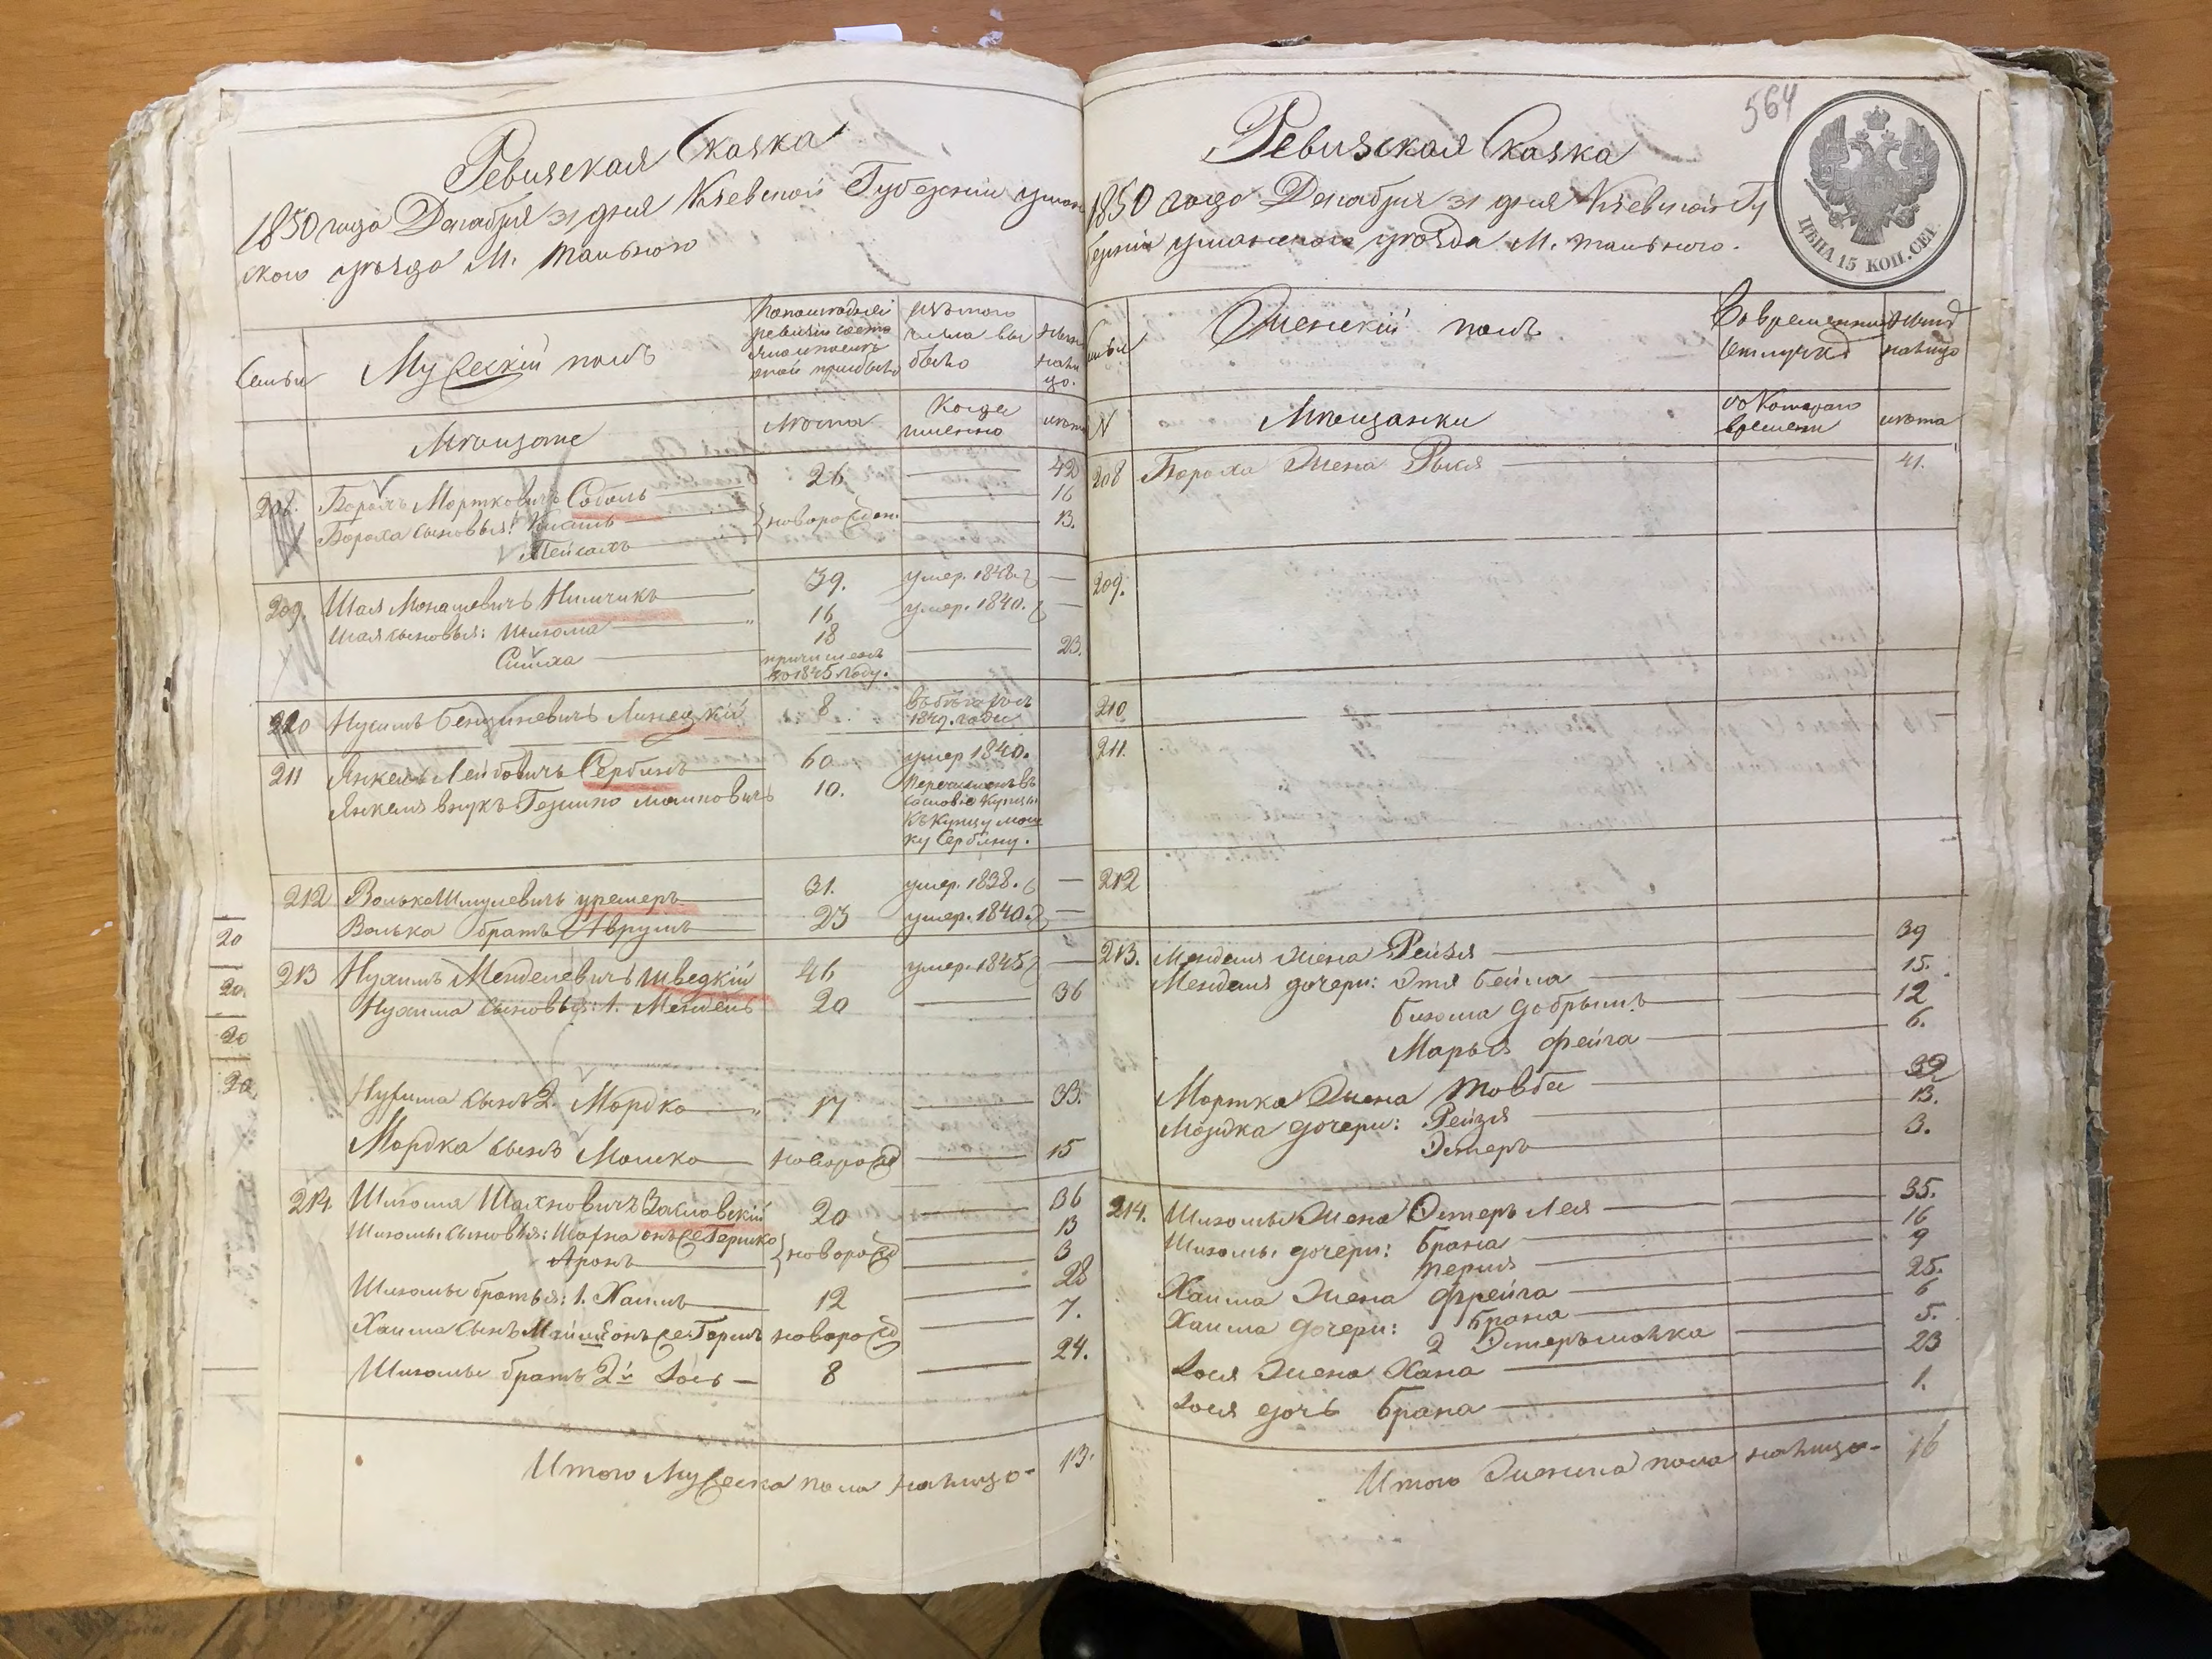 Ревизская Сказка
1850 года Декабря 31 дня Киевской Губернии Уман
ского уезда М. Тального
Семьи
Мужеский полъ
По последней ревизіи состояло и после оной прибыло
Изъ того числа выбыло
Ныне на лицо.
Мещане
Лета
Когда именно
лета
208. Борохъ Мортковичъ Соболь 26 42
Бороха сыновья: 16
Пейсахъ новорожден. 13.
209. Шая Монашевичъ Нимчикъ 39. умер. 1848
Шая сыновья: Шлёма 16 умер. 1840.
Симха 18 причисленъ по 1845 году. 23.
210 Нухимъ Бенционовичъ Линецкій 8 въ бегахъ съ 1849. года
211 Янкель Лейбовичъ Сербинъ 60 умер 1840.
Янкеля внукъ Гершко Мошковичъ 10. Перечисленъ въ сословіе купцы къ купцу Мошку Сербину.
212 Волько Шмулевичъ Кремеръ 31. умер. 1838.
Волька братъ Аврумъ 23 умер. 1840.
213 Нухимъ Менделевичъ Шведкій 46 умер. 1845
Нухима сыновья: 1. Мендель 20 36
Нухима сынъ 2. Мордко 17 33.
Мордка сынъ Мошко новорожд 15
214. Шлёма Шахновичъ Заславскій 20 36
Шлёмы сыновья: Шахна онъ же Гершко 13
Аронъ новорожд 3
Шлёмы братья: 1. Хаимъ 12 28
Хаима сынъ онъ же Гершъ новорожд 7.
Шлёмы братъ 2й Іось 8 24.
Итого Мужеска пола налицо 13.
20
20.
20
20
564
Ревизская Сказка
1850 года Декабря 31 дня Киевской Гу
берніи Уманского уезда М. Тального.
ЦЕНА 15 КОП. СЕР.
Семьи
Женскій полъ
Во временной отлучке
Ныне налицо
№
Мещанки
Съ котораго времени
лета
208 Бороха жена Рыся 41.
209.
210
211.
212
213. Менделя жена Рейзя 39
Менделя дочери: Этя Бейла 15.
Блюма Добрышъ 12
Марья Фейга 6.
Мортка жена Товба 32
Мордка дочери: Рейзя 13.
Эстеръ 3.
214. Шлёмы жена Эстеръ Лея 35.
Шлёмы дочери: Брана 16
Перля 9
Хаима жена Фрейга 25.
Хаима дочери: 1 Брана 6
2 Эстеръ Малка 5.
Іося жена Хана 23
Іося дочь Брана 1.
Итого Женска пола налицо 16